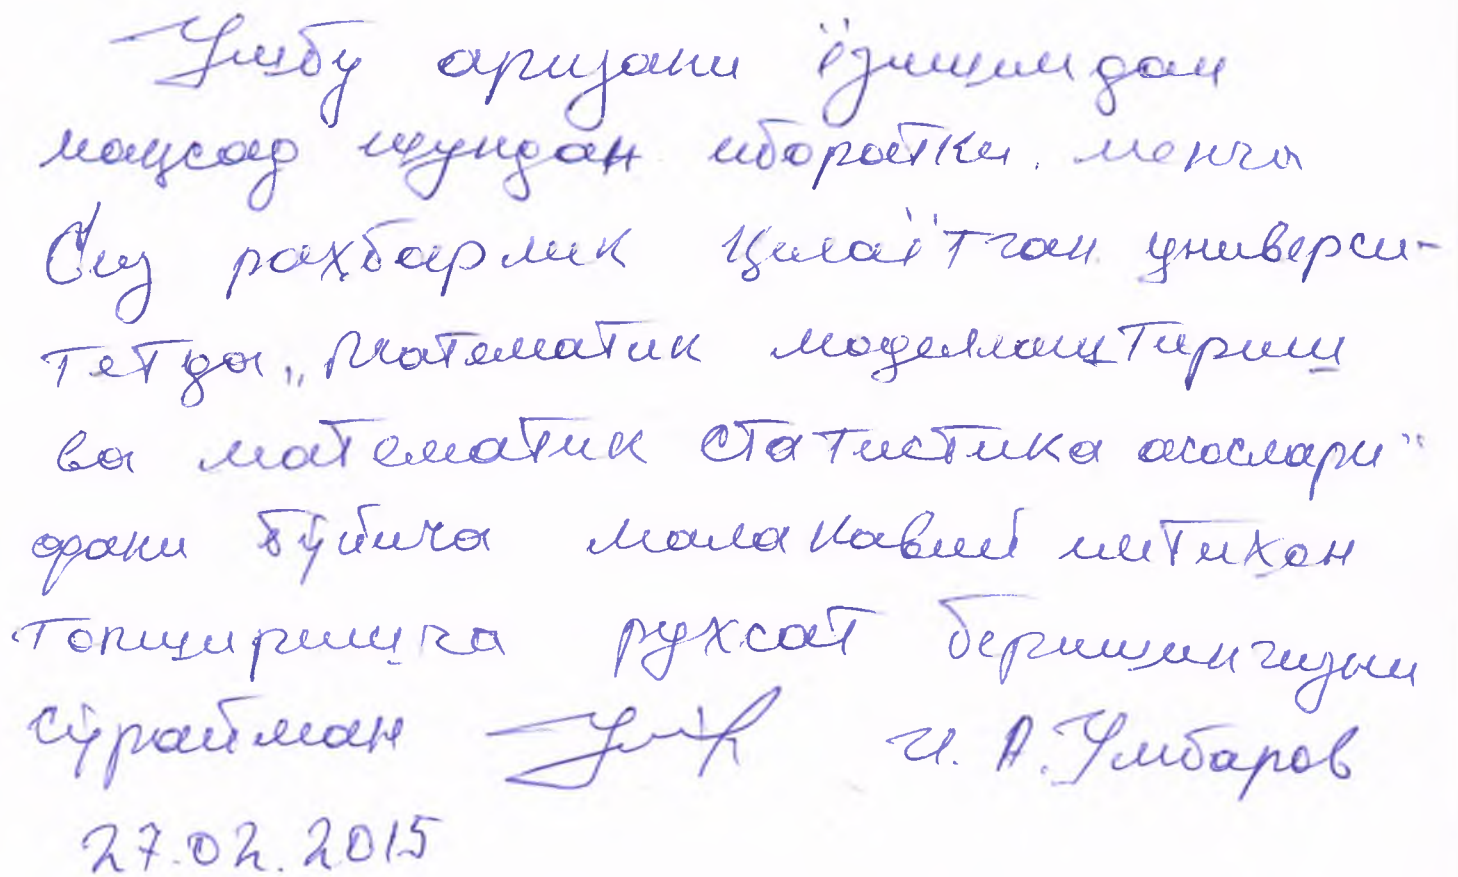 Ушбу аризани ёзишимдан
мақсад шундан иборатки, менга
Сиз раҳбарлик қилаётган универси-
тетда „Математик моделлаштириш
ва математик статистика асослари"
фани бўйича малакавий имтихон
топширишга рухсат беришингизни
сўрайман И. А. Умбаров
27.02.2015